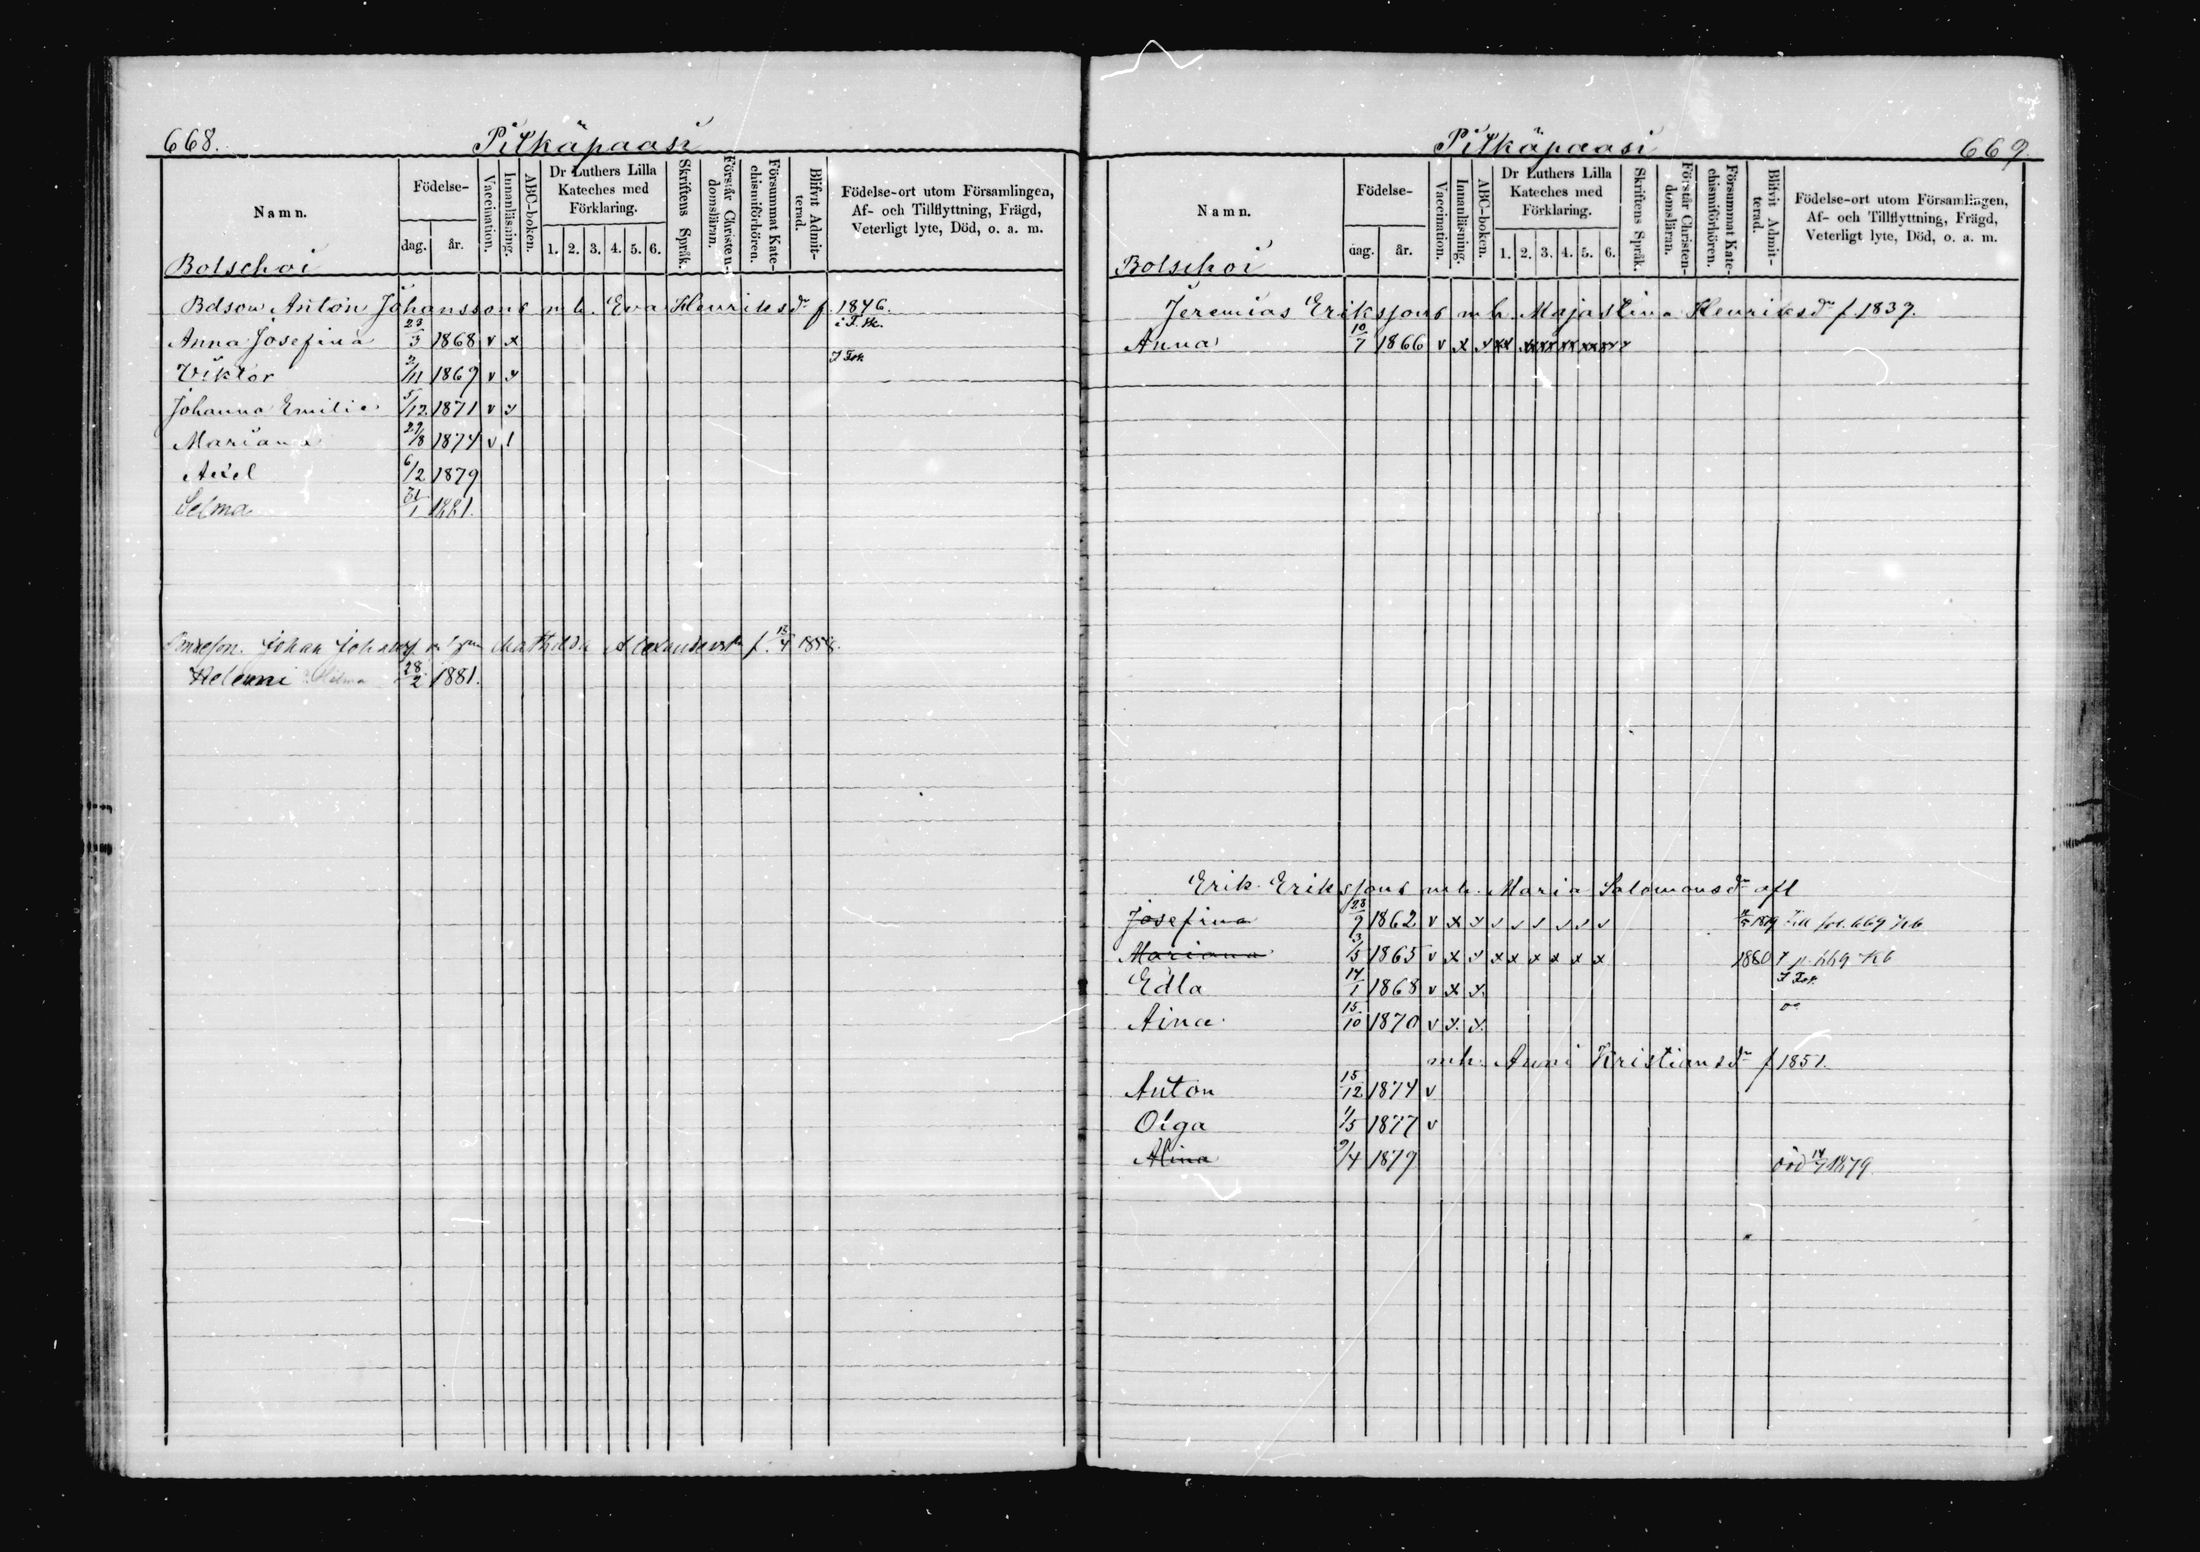 668. Pitkäpaasi
Namn.
Födelse-
dag. år.
Vaccination.
Innanläsning.
ABC-boken.
Dr Luthers Lilla Kateches med Förklaring.
1. 2. 3. 4. 5. 6.
Skriftens Språk.
Förstår Christendomsläran.
Försummat Katechismiförhören.
Blifvit Admitterad.
Födelse-ort utom Församlingen,
Af- och Tillflyttning, Frägd,
Veterligt lyte, Död, o. a. m.
Bolschoi
Bdson Anton Johanssons m h. Eva Henriksdr f. 1846.
Anna Josefina 23/3 1868 v x
Viktor 2/11 1869 v x
Johanna Emilia 5/12 1871 v x
Mariana 27/8 1874 v 1
Axel 6/2 1879
Selma 31/1 1881.
Johan Mathilda f. 1858.
Helemi Hilma 28/2 1881.
Pitkäpaasi 669.
Namn.
Födelse-
dag. år.
Vaccination.
Innanläsning.
ABC-boken.
Dr Luthers Lilla Kateches med Förklaring.
1. 2. 3. 4. 5. 6.
Skriftens Språk.
Förstår Christendomsläran.
Försummat Katechismiförhören.
Blifvit Admitterad.
Födelse-ort utom Församlingen,
Af- och Tillflyttning, Frägd,
Veterligt lyte, Död, o. a. m.
Bolschoi
Jeremias Erikssons m h. Maja Stina Henriksdr f 1839.
Anna 10/7 1866 v x x xx xx xx xx xx
Erik Erikssons m h. Maria Salomonsdr afl
Josefina 23/9 1862 v x x 1879
Mariana 3/5 1865 v x x x x x x x x 1880
Edla 14/1 1868 v x x
Aina 15/10 1870 v x. x.
mh. Anni Kristiansdr f 1851.
Anton 15/12 1874 v
Olga 1/5 1877 v
Alina 9/4 1879 död 14/7 1879.